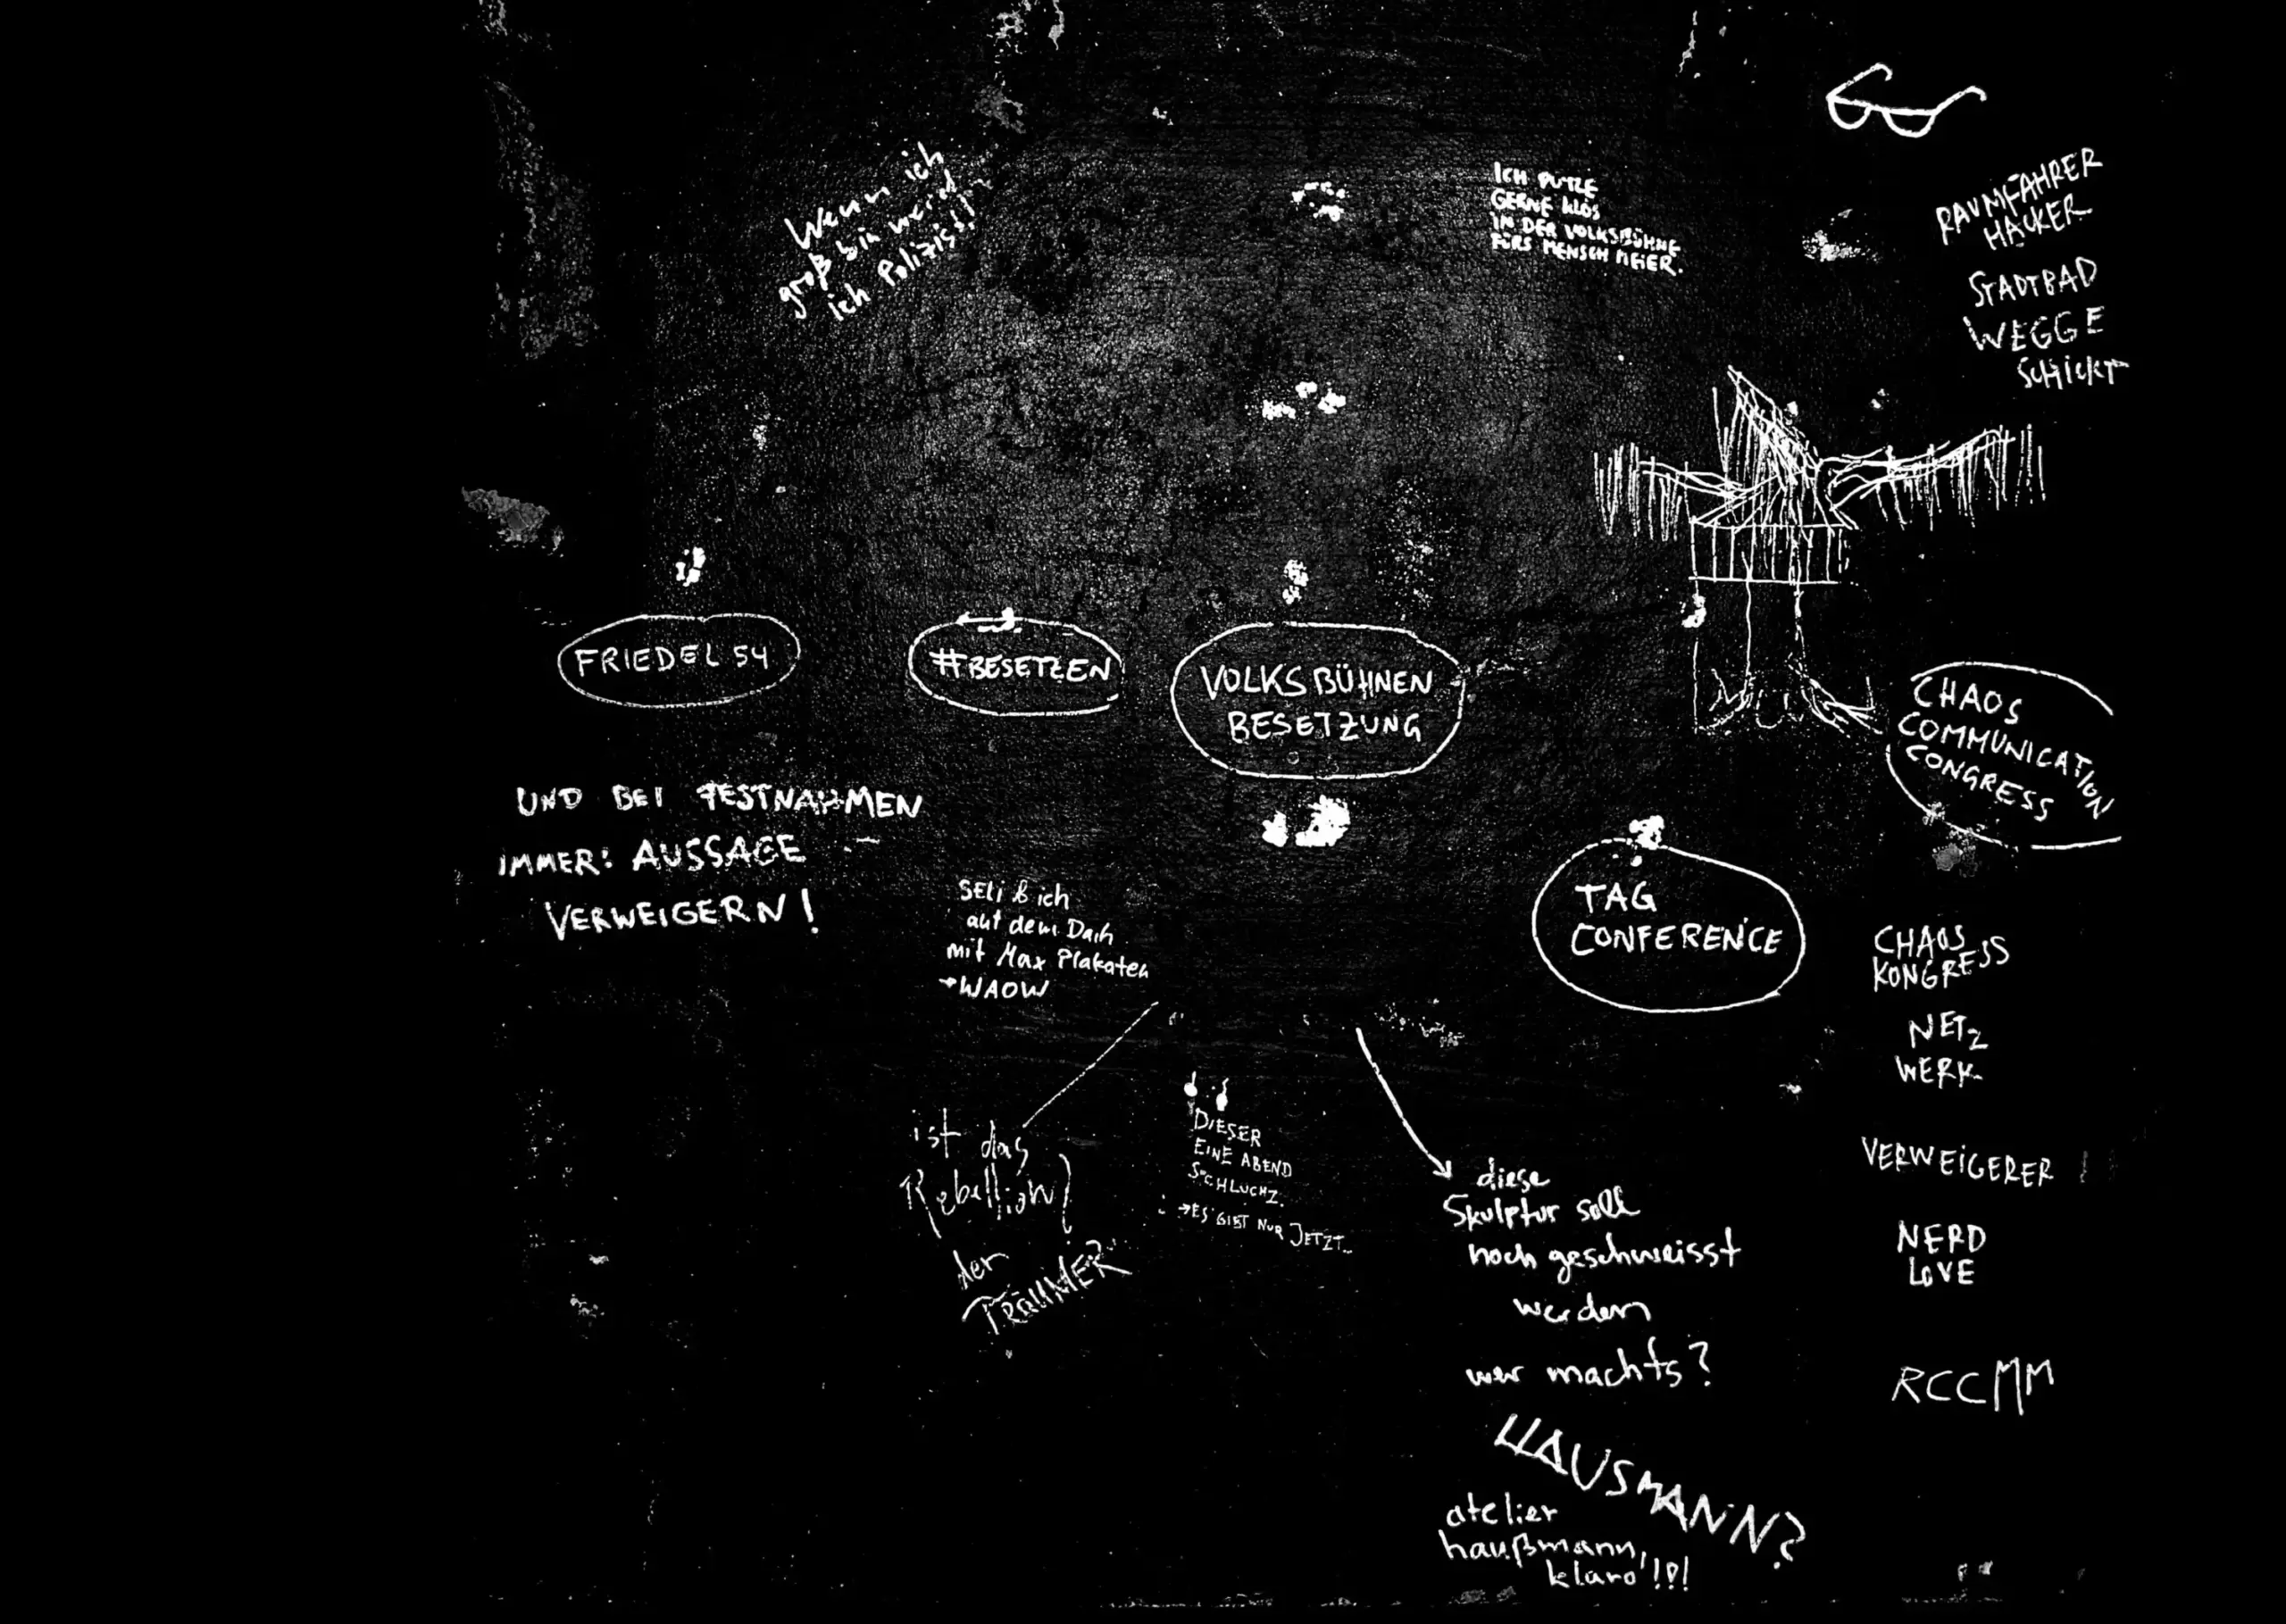 Wenn ich
groß bin werd
ich Polizist!
ICH PUTZE
GERNE KLOS
IN DER VOLKSBÜHNE
FÜRS MENSCH MEIER.
RAUMFAHRER
HACKER
STADTBAD
WEGGE
SCHICKT
FRIEDEL 54
#BESETZEN
VOLKSBÜHNEN
BESETZUNG
CHAOS
COMMUNICATION
CONGRESS
UND BEI FESTNAHMEN
IMMER: AUSSAGE
VERWEIGERN!
SELI & ich
auf dem Dach
mit Max Plakaten
→WAOW
TAG
CONFERENCE
CHAOS
KONGRESS
NETZ
WERK
VERWEIGERER
NERD
LOVE
RCCMM
ist das
Rebellion
der
TRÄUMER
DIESER
EINE ABEND
SCHLUCHZ.
→ES GIBT NUR JETZT..
diese
Skulptur soll
noch geschweisst
werden
wer machts?
HAUSMANN?
atelier
haußmann,
klaro!!!